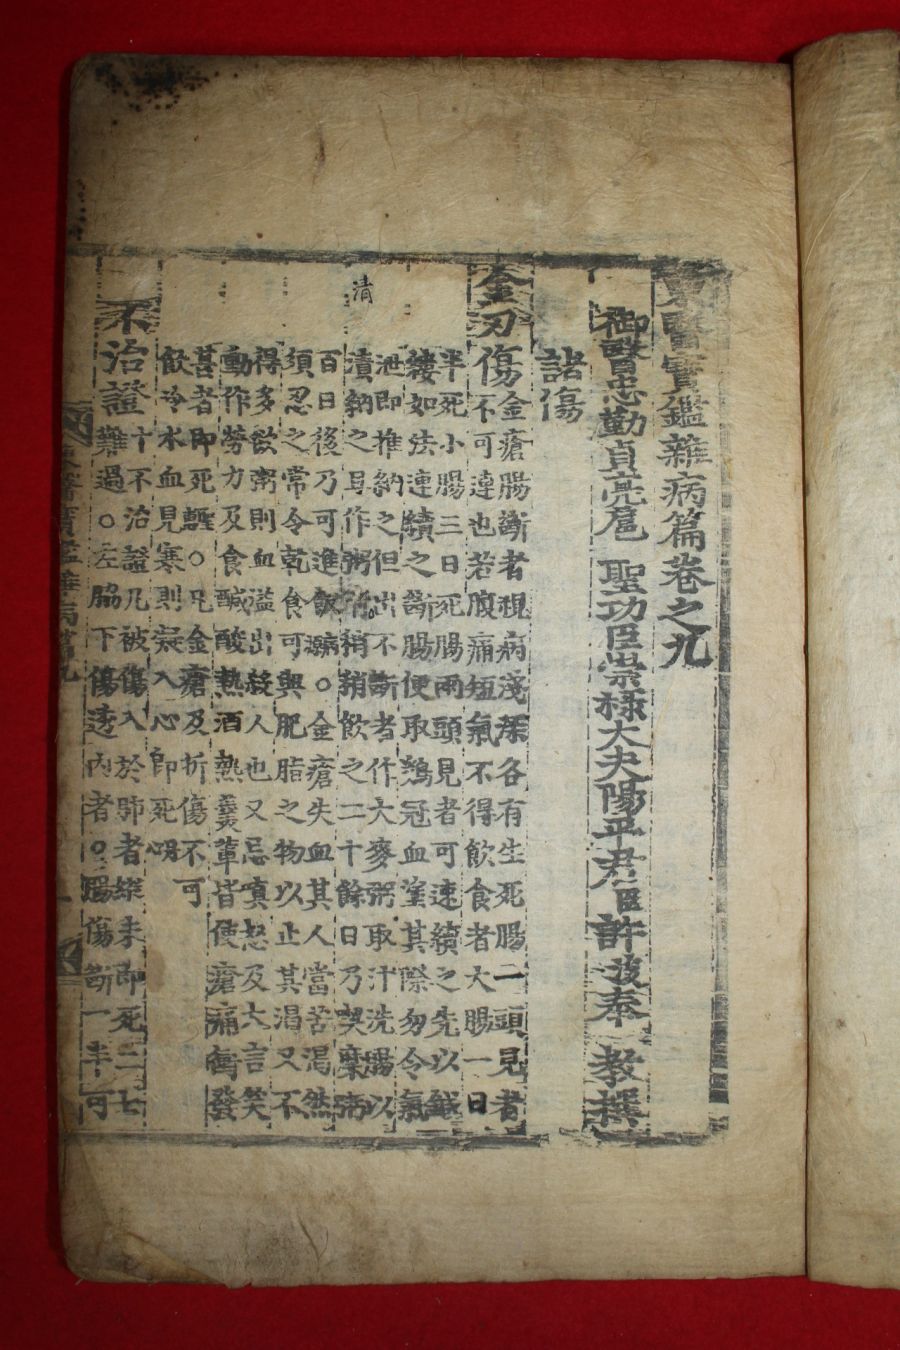 東醫寶鑑雜病篇卷之九
御醫忠勤貞亮扈 聖功臣崇祿大夫陽平君臣許浚奉 教撰
諸傷
金刃傷
金瘡腸斷者視病淺深各有生死腸二頭見者
不可連也若腹痛短氣不得飮食者大腸一日
半死小腸三日死腸兩頭見者可速續之先以鍼
縷如法連續之斷腸便取鷄冠血塗其際勿令氣
泄即推納之但出不斷者作大麥粥取汁洗腸以
漬納之且作粥淸稍稍飮之二十餘日乃喫糜粥
清
百日後乃可進飯○金瘡失血其人當苦渴然
須忍之常令乾食可與肥脂之物以止其渴又不
得多飮粥則血溢出殺人也又忌嗔怒及大言笑
動作勞力及食醎酸熱酒熱羹輩皆使瘡痛衝發
甚者即死○凡金瘡及折傷不可
飮冷水血見寒則凝入心即死
不治證
十不治證凡被傷入於肺者縱未即死二七
難過○左脇下傷透內者○腸傷斷一半可
東醫寶鑑雜病篇九